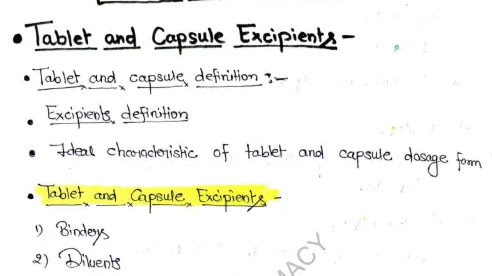 • Tablet and Capsule Excipients -
• Tablet and capsule definition :-
• Excipients definition
• Ideal characteristic of tablet and capsule dosage form
• Tablet and Capsule Excipients -
1) Binders
2) Diluents